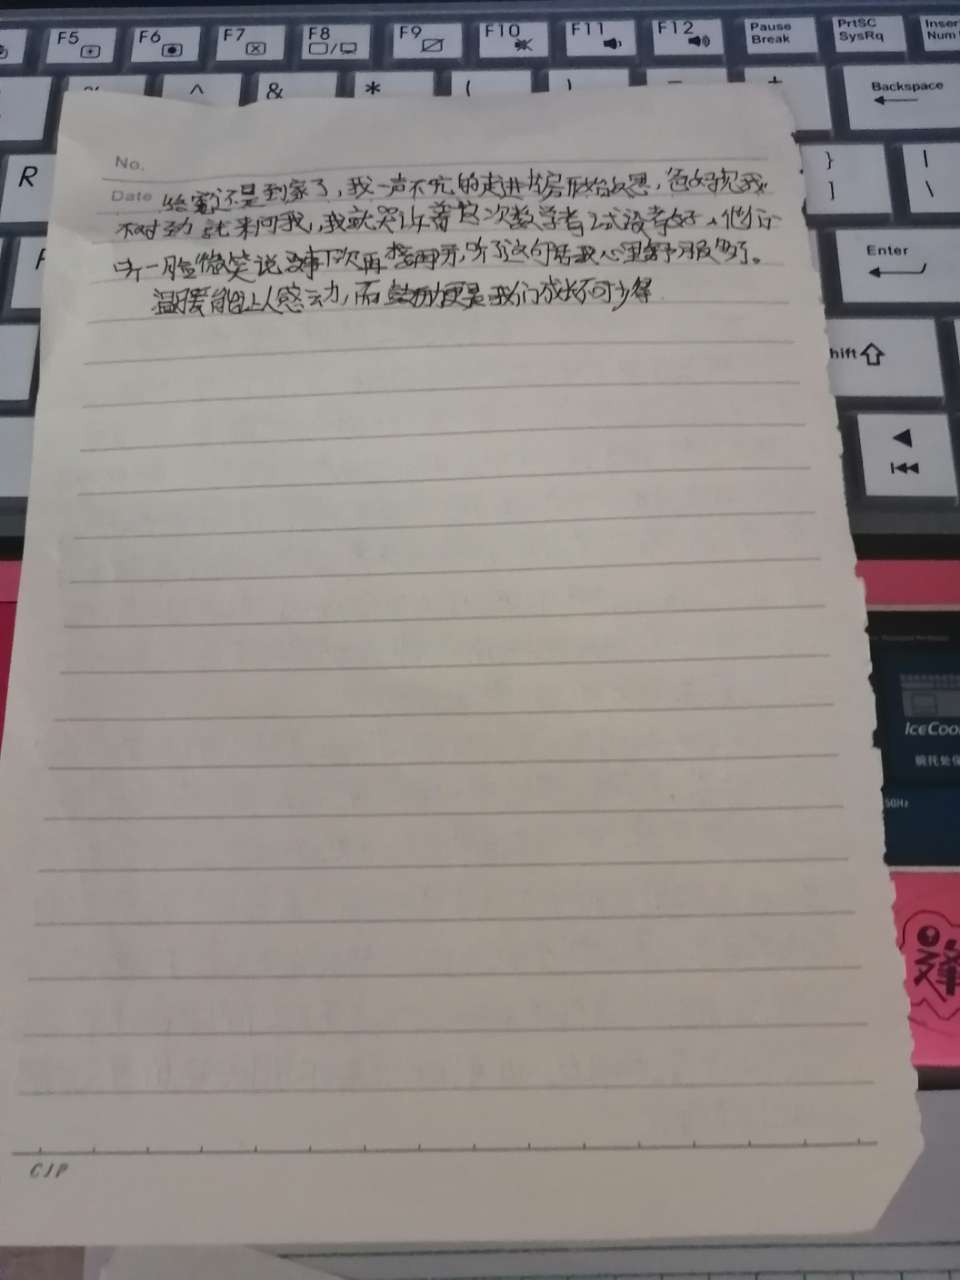 F5
F6
F7
F8
F9
F10
F11
F12
Pause
Break
PrtSC
SysRq
Inser
Num
^
&
*
(
)
+
Backspace
R
}
]
|
\
Enter
hift
No.
Date
还是到家了,我一声不吭的走进书房开始反思,爸妈觉我
不对劲就来问我,我就哭诉着这次数学考试没考好,他们
听一脸微笑说没事下次再接再厉,听了这句话我心里舒服多了。
温暖能让人感动,而鼓励更是我们成长不可少得
CIP
IceCoo
50Hz